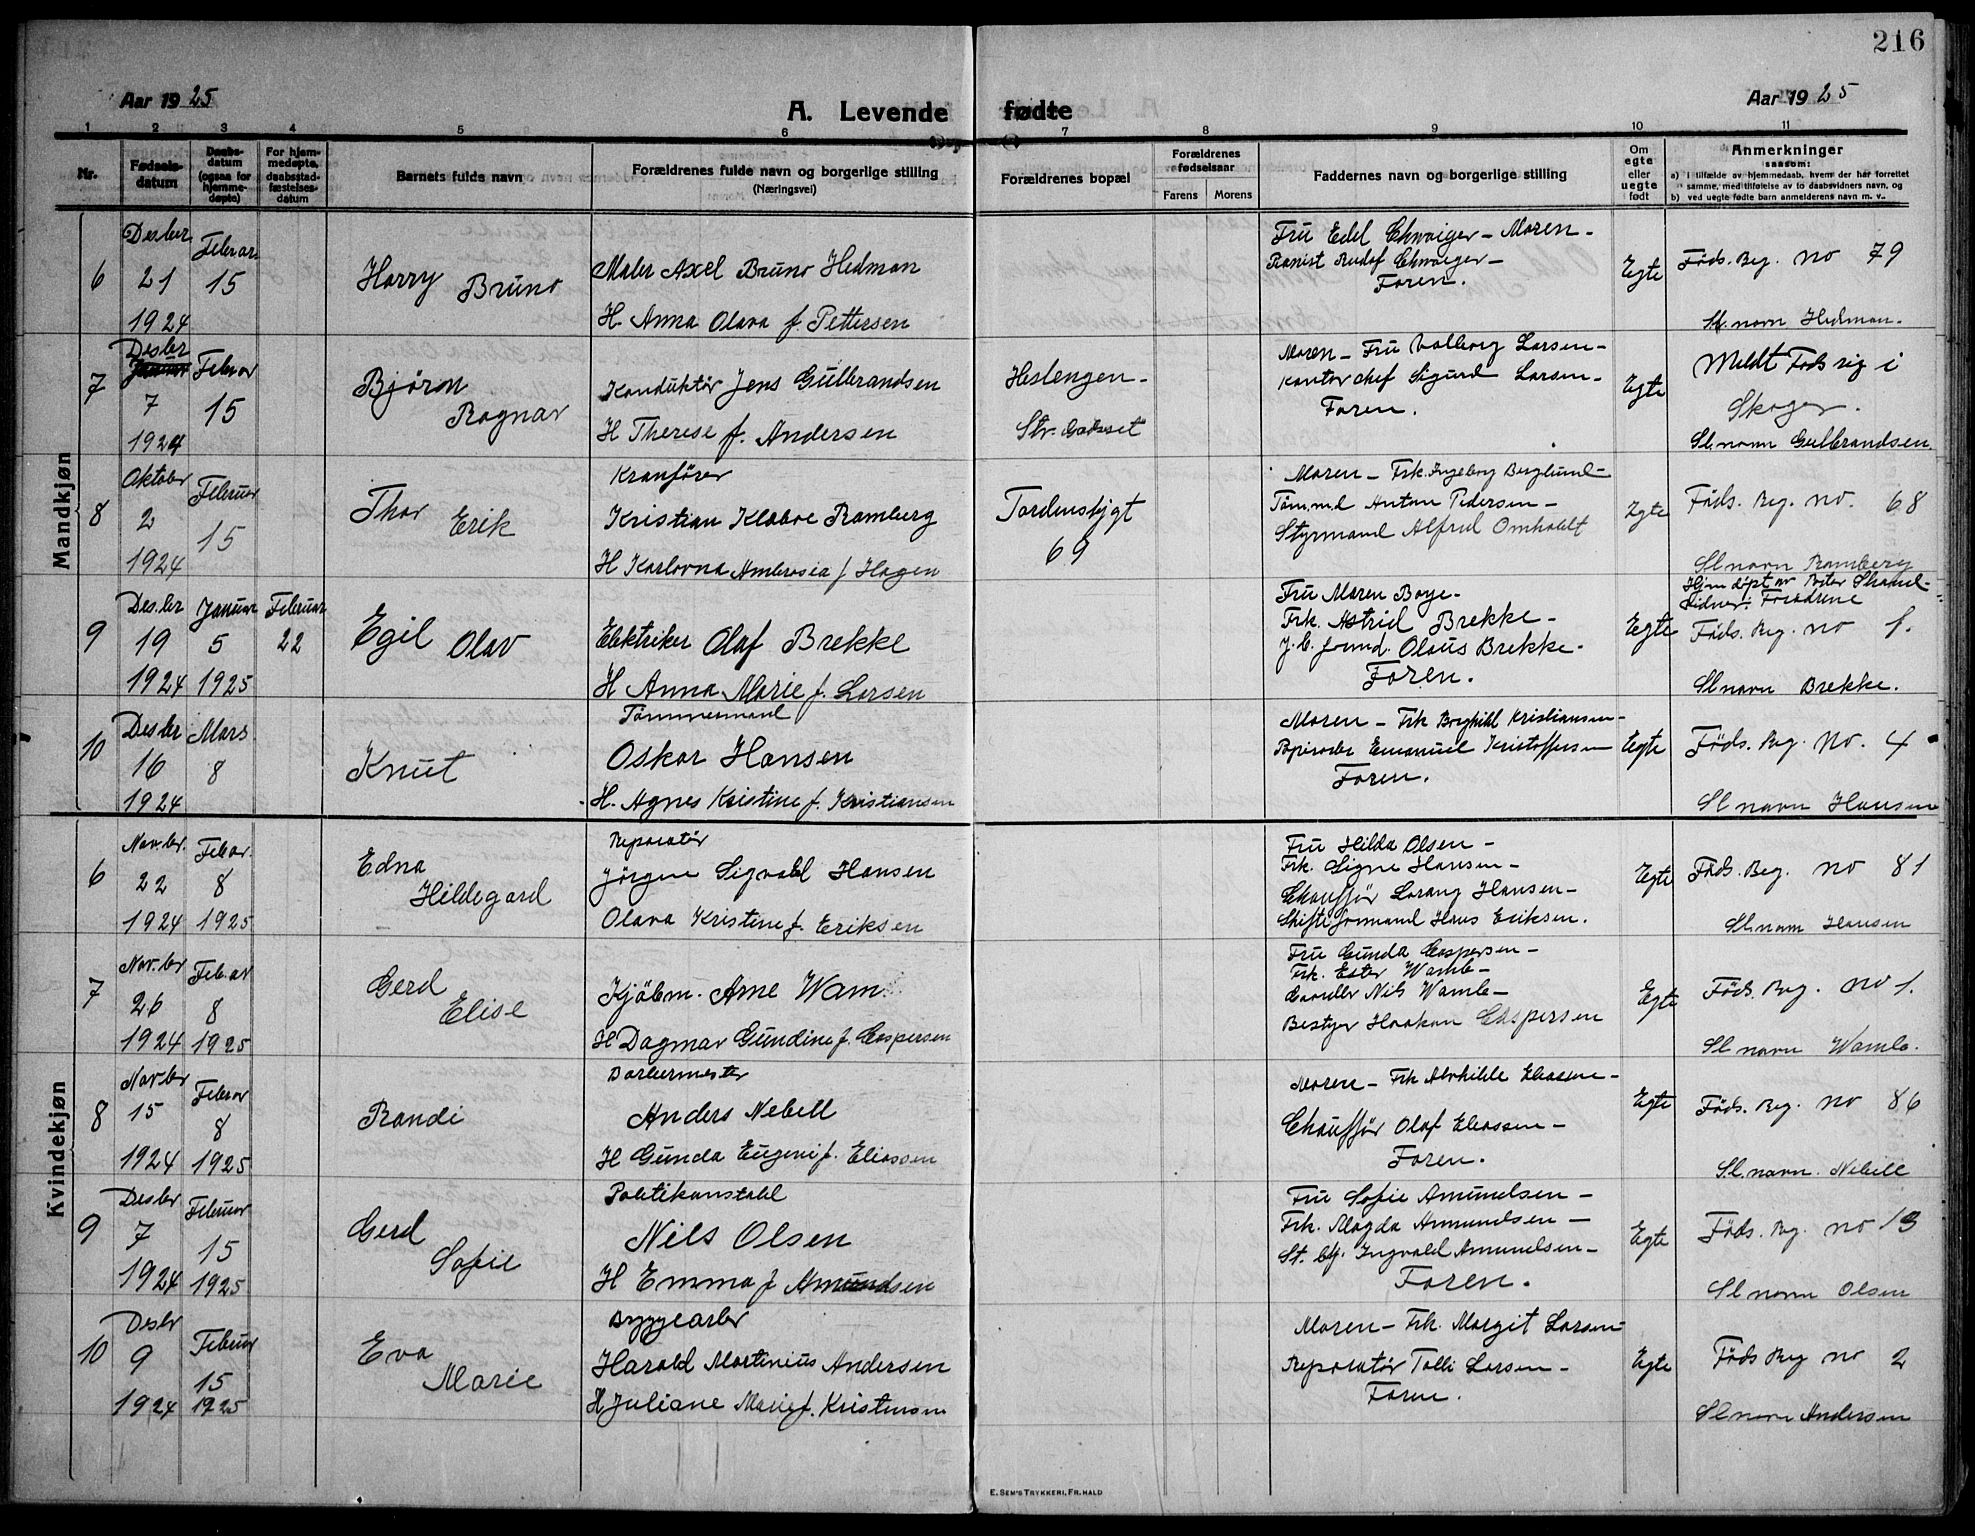 216
Aar 1925
A. Levende fødte
Aar 1925
1 2 3 4 5 6 7 8 9 10 11
Nr.
Fødsels-
datum
Daabs-
datum
(ogsaa for
hjemme-
døpte)
For hjem-
medøpte,
daabsstad-
fæstelses-
datum
Barnets fulde navn
Forældrenes fulde navn og borgerlige stilling
(Næringsvei)
Forældrenes bopæl
Forældrenes
fødselsaar
Farens Morens
Faddernes navn og borgerlige stilling
Om
egte
eller
uegte
født
Anmerkninger
saasom:
a) i tilfælde av hjemmedaab, hvem der har forrettet
samme, med tilføielse av to daabsvidners navn, og
b) ved uegte fødte barn anmelderens navn m. v..
Mandkjøn
6
Desber 21 1924
Februar 15
Harry Bruno
Maler Axel Bruno Hedman
H. Anna Olava f. Pettersen
Fru Edel Chwoiger - Moren -
Pianist Rudof Chwoiger -
Faren.
Egte
Føds. Reg. no 79
Sl. navn Hedman.
7
Desber 7 1924
Februar 15
Bjørn Ragnar
Konduktør Jens Gulbrandsen
H Therese f. Andersen
Heslengen -
Str. Godset
Moren - Fru Valborg Larsen -
Kontorchef Sigurd Larsen -
Faren.
Egte
Meldt Føds reg i
Skoger.
Sl. navn Gulbrandsen
8
Oktober 2 1924
Februar 15
Thor Erik
Kranfører
Kristian Klaboe Ramberg
H Karlovna Ambrosia f Hagen
Tordenskjgt
69
Moren - Frk. Ingeborg Berglund -
Tømmd Anton Pedersen -
Styrmand Alfred Omholdt
Egte
Føds. Reg. no. 68
Sl navn Ramberg
9
Desber 19 1924
Januar 5 1925
Februar 22
Egil Olav
Elektriker Olaf Brekke
H Anna Marie f. Larsen
Fru Maren Boye -
Frk. Astrid Brekke -
Olaus Brekke -
Faren.
Egte
Hjem døpt av
Vidner: Forældrene
Føds. Reg. no 1.
Sl navn Brekke.
10
Desber 16 1924
Mars 8
Knut
Tømmermand
Oskar Hansen
H. Agnes Kristine f. Kristiansen
Moren - Frk Borghild Kristiansen -
Emanuel Kristoffersen
Faren.
Egte
Føds. Reg. No. 4
Sl navn Hansen
Kvindekjøn
6
Nov.br. 22 1924
Febar. 8 1925
Edna Hildegard
Reparatør
Jørgen Sigvald Hansen
Olava Kristine f. Eriksen
Fru Hilda Olsen -
Frk. Signe Hansen -
Chauffør Lorang Hansen -
Skifteformand Hans Eriksen.
Egte
Føds. Reg. no 81
Sl. navn Hansen
7
Nov.br 26 1924
Feb.ar 8 1925
Gerd Elise
Kjøbm. Arne Wam
H Dagmar Gundine f. Caspersen
Fru Gunda Caspersen -
Frk. Ester Wamb -
Nils Wamb -
Bestyer Haakon Caspersen
Egte
Føds. Reg. no 1.
Sl navn Wamb.
8
Nov.br 15 1924
Februar 8 1925
Randi
Barbermester
Anders Nebell
H Gunda Eugenie f. Eliassen
Moren - Frk Alvhilde Eliassen -
Chauffør Olaf Eliassen -
Faren.
Egte
Føds. Reg. no 86
Sl. navn. Nebell
9
Desbr 7 1924
Februar 15 1925
Gerd Sofie
Politikonstabl
Nils Olsen
H Emma f Amundsen
Fru Sofie Amundsen -
Frk. Magda Amundsen -
St. btj. Ingvald Amundsen -
Faren.
Egte
Føds. Reg. no 13
Sl navn Olsen
10
Desbr 9 1924
Februar 15 1925
Eva Marie
Byggearbr
Harald Martinius Andersen
H Juliane Marie f. Kristensen
Moren - Frk. Margit Larsen -
Reparatør Tolli Larsen -
Faren.
Egte
Føds Reg no 2
Sl navn Andersen
E. SEM'S TRYKKERI, FR. HALD